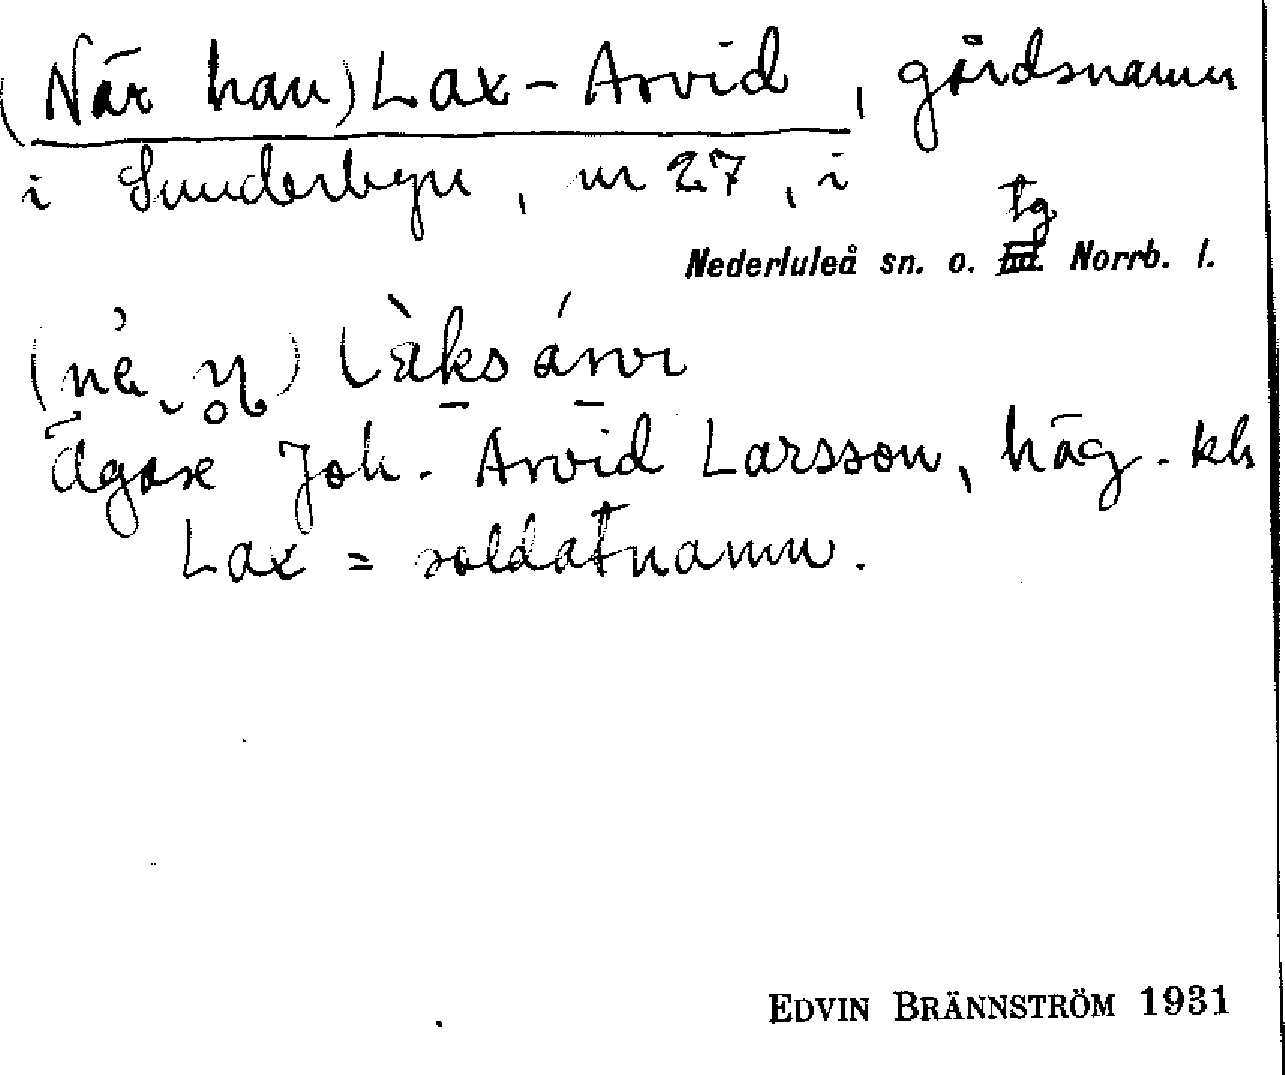 (När han) Lax-Arvid, gårdsnamn
i Sunderbyn, nr 27, i
tg
Nederluleå sn. o. hd. Norrb. l.
làksárvi
Ägare Joh. Arvid Larsson, häg. kh
Lax = soldatnamn.
EDVIN BRÄNNSTRÖM 1931